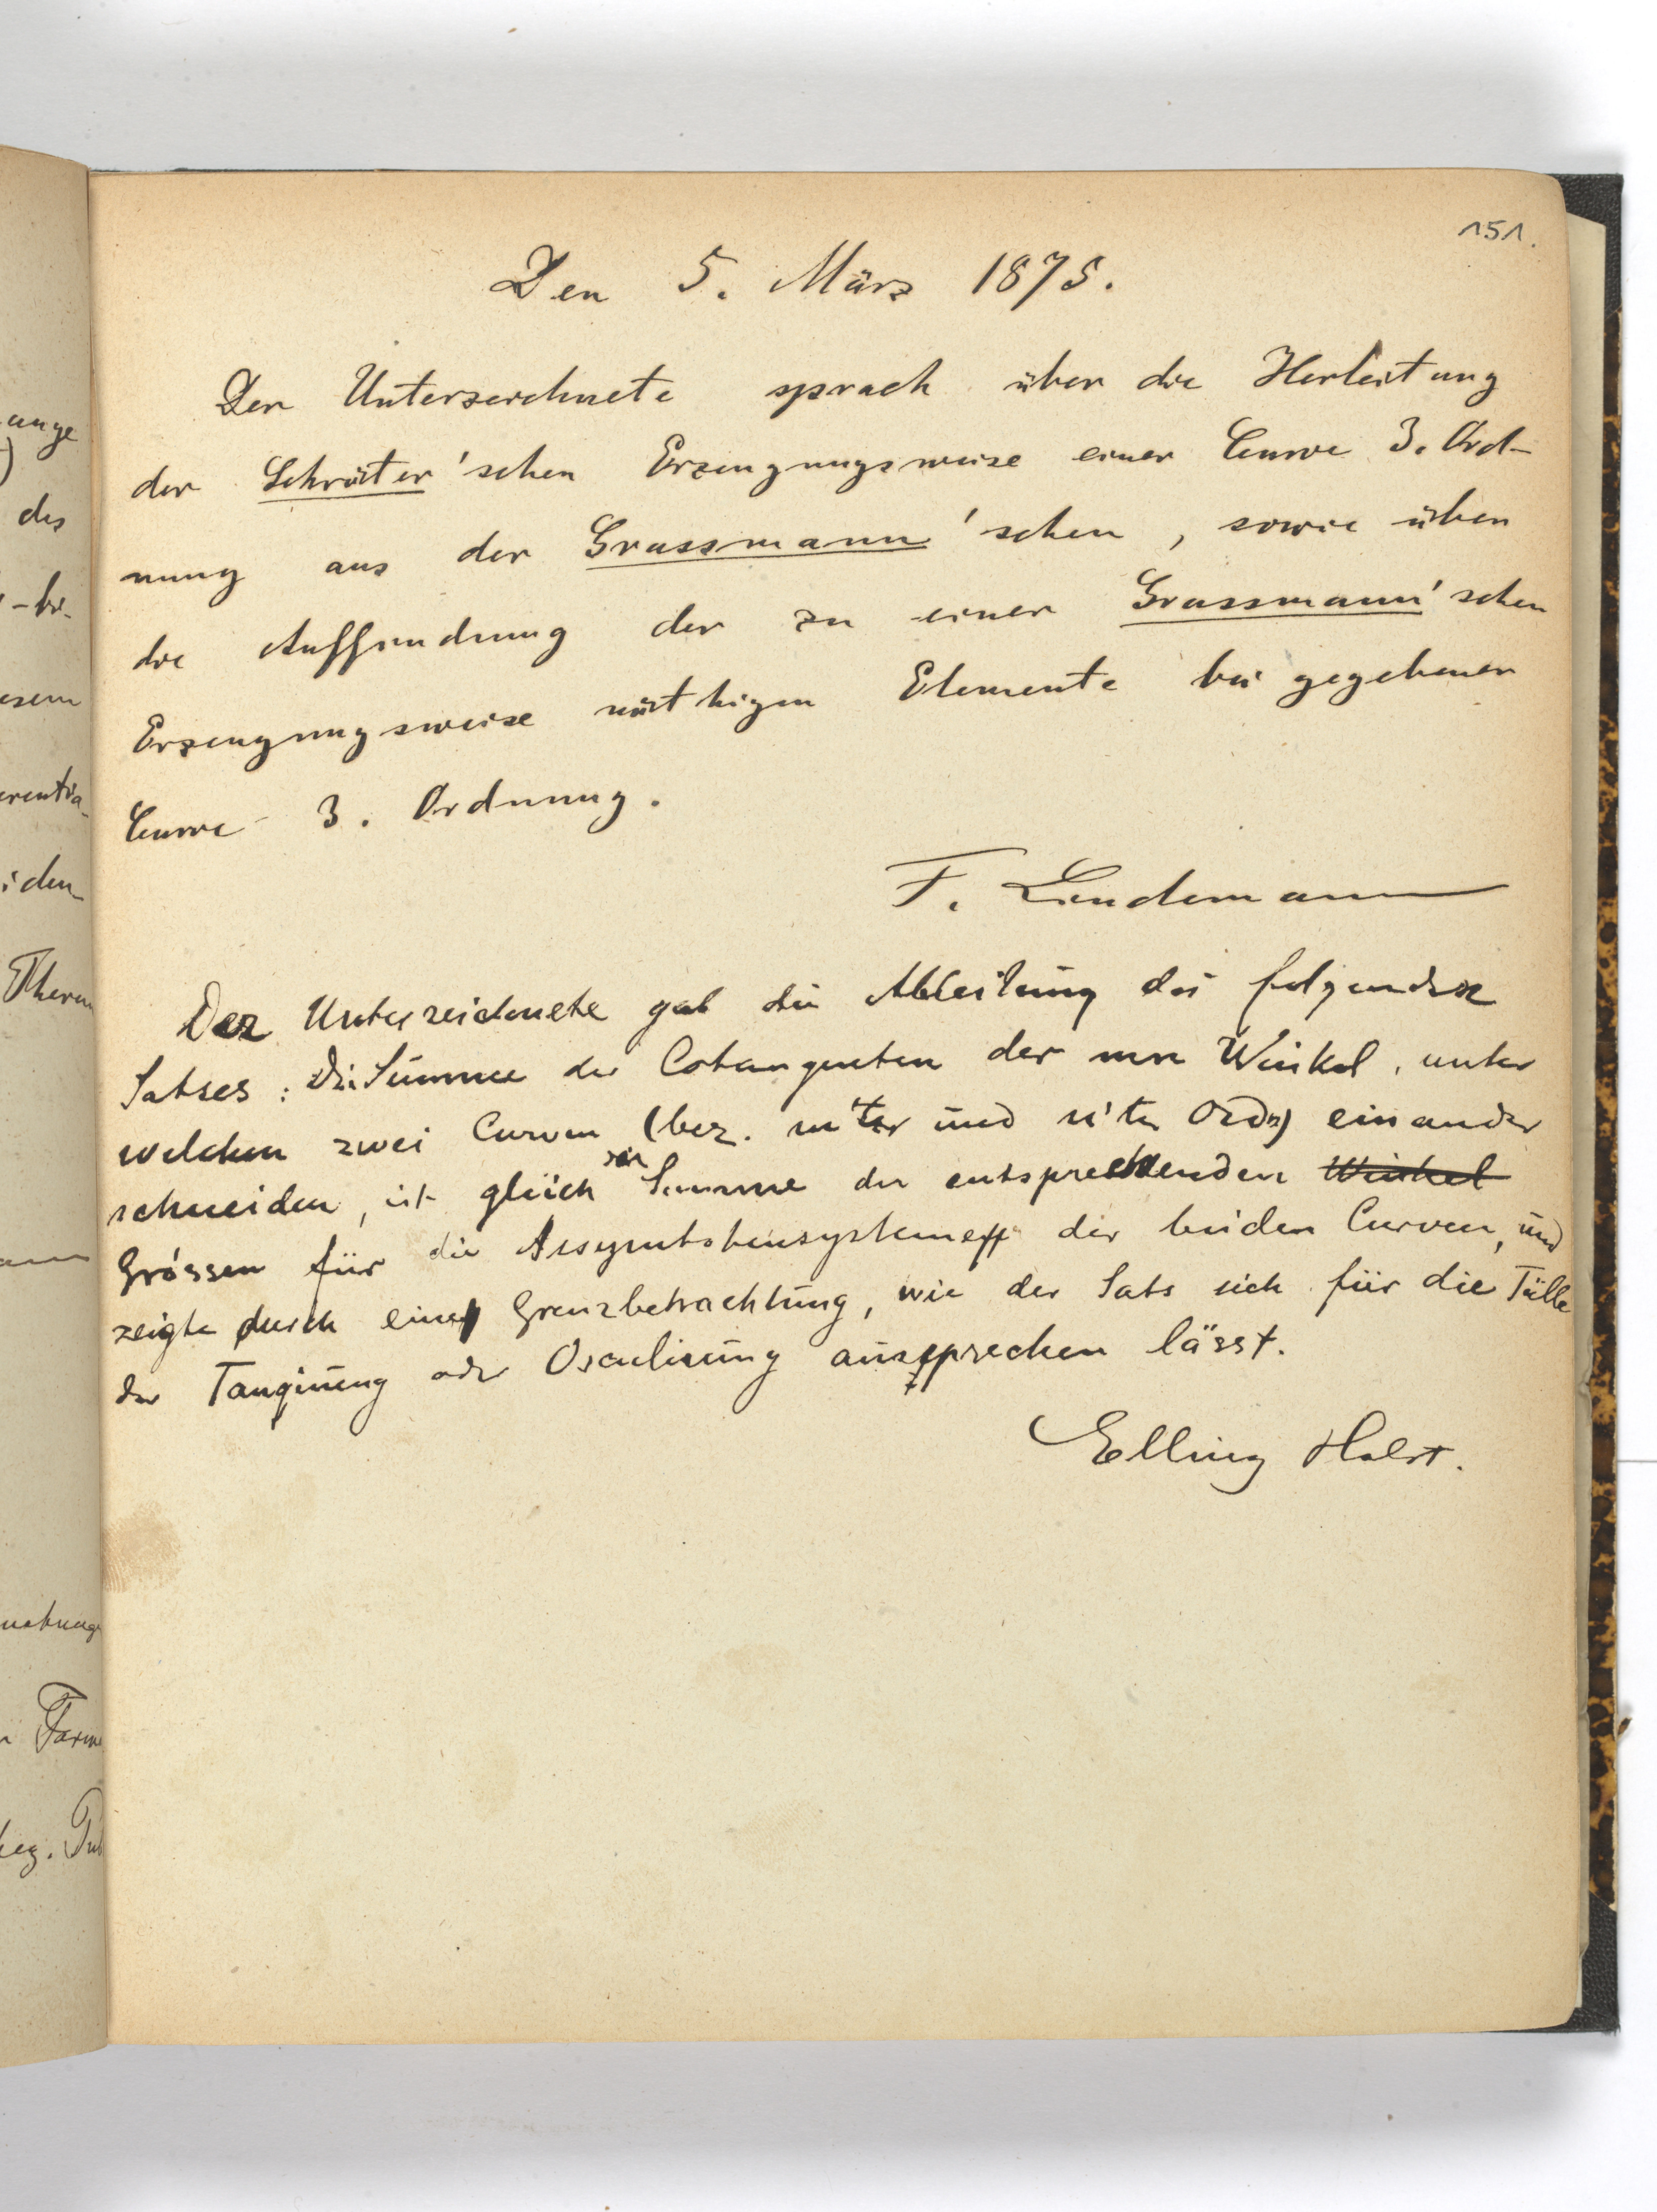 151.
Den 5. März 1875.
Der Unterzeichnete sprach über die Herleitung
der Schröter'schen Erzeugungsweise einer Curve 3. Ord-
nung aus der Grassmann'schen, sowie über
die Auffindung der zu einer Grassmann'schen
Erzeugungsweise nöthigen Elemente bei gegebener
Curve 3. Ordnung.
F. Lindemann
Der Unterzeichnete gab die Ableitung des folgenden
Satses: Die Summe der Cotangenten der mn Winkel, unter
welchen zwei Curven (bez. m'ter und n'ter Ordn) einander
schneiden, ist gleich der Summe der entsprechenden Winkel
Grössen für die Assymtotensysteme der beiden Curven, und
zeigte durch eine Grenzbetrachtung, wie der Sats sich für die Fälle
der Tangirung oder Osculirung aussprechen lässt.
Elling Holst.
ange
)
des
-be-
esem
erentia-
iden
Therm
Form
bez.